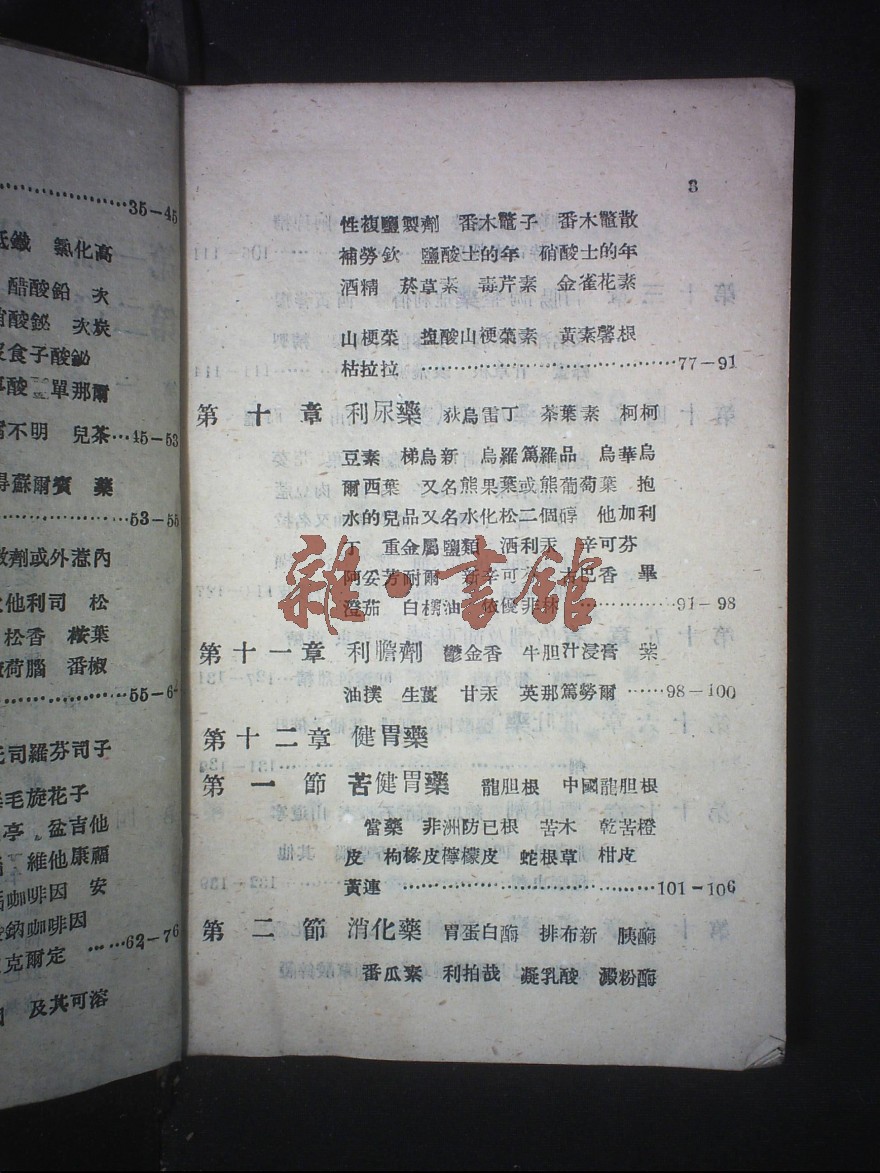 35－45
氯化高
醋酸鉛 次
酸鉍 次炭
食子酸鉍
單那爾
不明 兒茶…45－53
蘇爾賓 藥
53－55
劑或外惹內
他利司 松
松香 桉葉
荷腦 番椒
55－6
司羅芬司子
毛旋花子
亭 盆吉他
維他康福
咖啡因 安
鈉咖啡因
克爾定 ……62－76
及其可溶
3
性複鹽製劑 番木鼈子 番木鼈散
補勞欽 鹽酸士的年 硝酸士的年
酒精 菸草素 毒芹素 金雀花素
山梗菜 鹽酸山梗菜素 黃素馨根
枯拉拉 ……77－91
第十章 利尿藥 狄烏雷丁 茶葉素 柯柯
豆素 梯烏新 烏羅篤羅品 烏華烏
爾西葉 又名熊果葉或熊葡萄葉 抱
水的兒品又名水化松二個醇 他加利
丁 重金屬鹽類 洒利汞 辛可芬
阿妥芳耐爾 新辛可芬 古巴香 畢
澄茄 白檀油 依優非林 ……91－98
第十一章 利膽劑 鬱金香 牛胆汁浸膏 柴
油撲 生薑 甘汞 英那篤勞爾 ……98－100
第十二章 健胃藥
第一節 苦健胃藥 龍胆根 中國龍胆根
當藥 非洲防已根 苦木 乾苦橙
皮 枸櫞皮檸檬皮 蛇根草 柑皮
黃連 ……101－106
第二節 消化藥 胃蛋白酶 排布新 胰酶
番瓜素 利拍哉 凝乳酸 澱粉酶
雜·書館